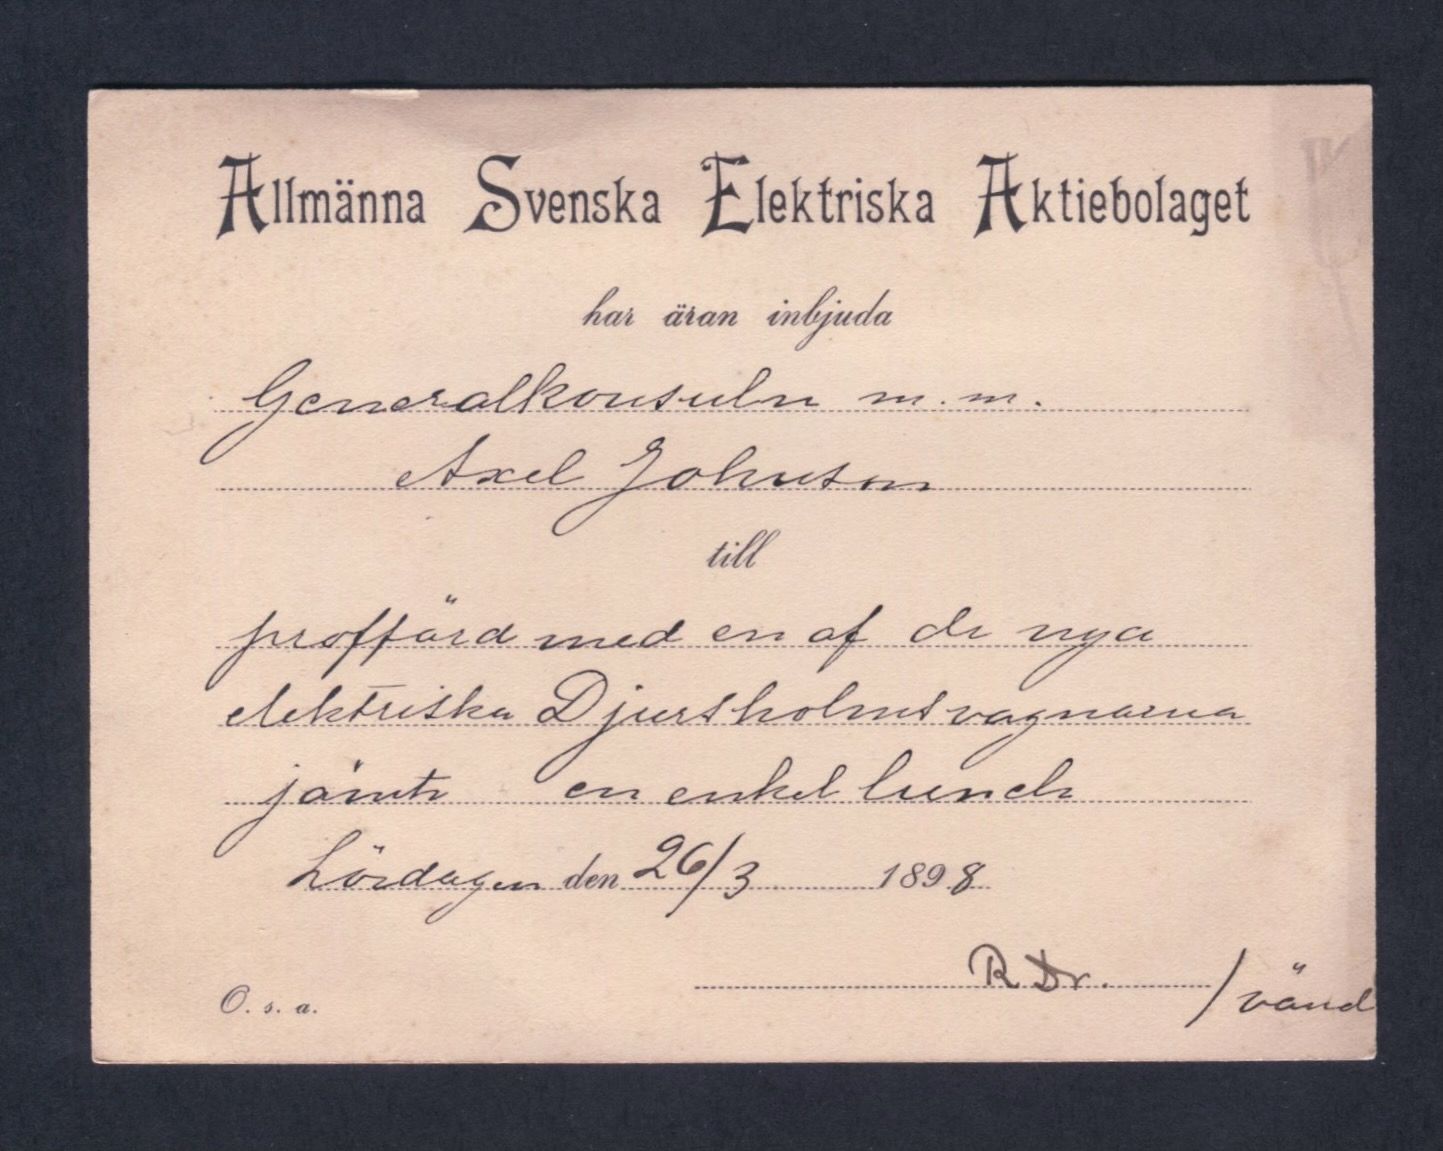 Allmänna Svenska Elektriska Aktiebolaget
har äran inbjuda
Generalkonsuln m. m.
Axel Johnson
till
proffärd med en af de nya
elektriska Djursholmsvagnarna
jämte en enkel lunch
Lördagen den 26/3 1898
R Dr.
O. s. a.
/ vänd